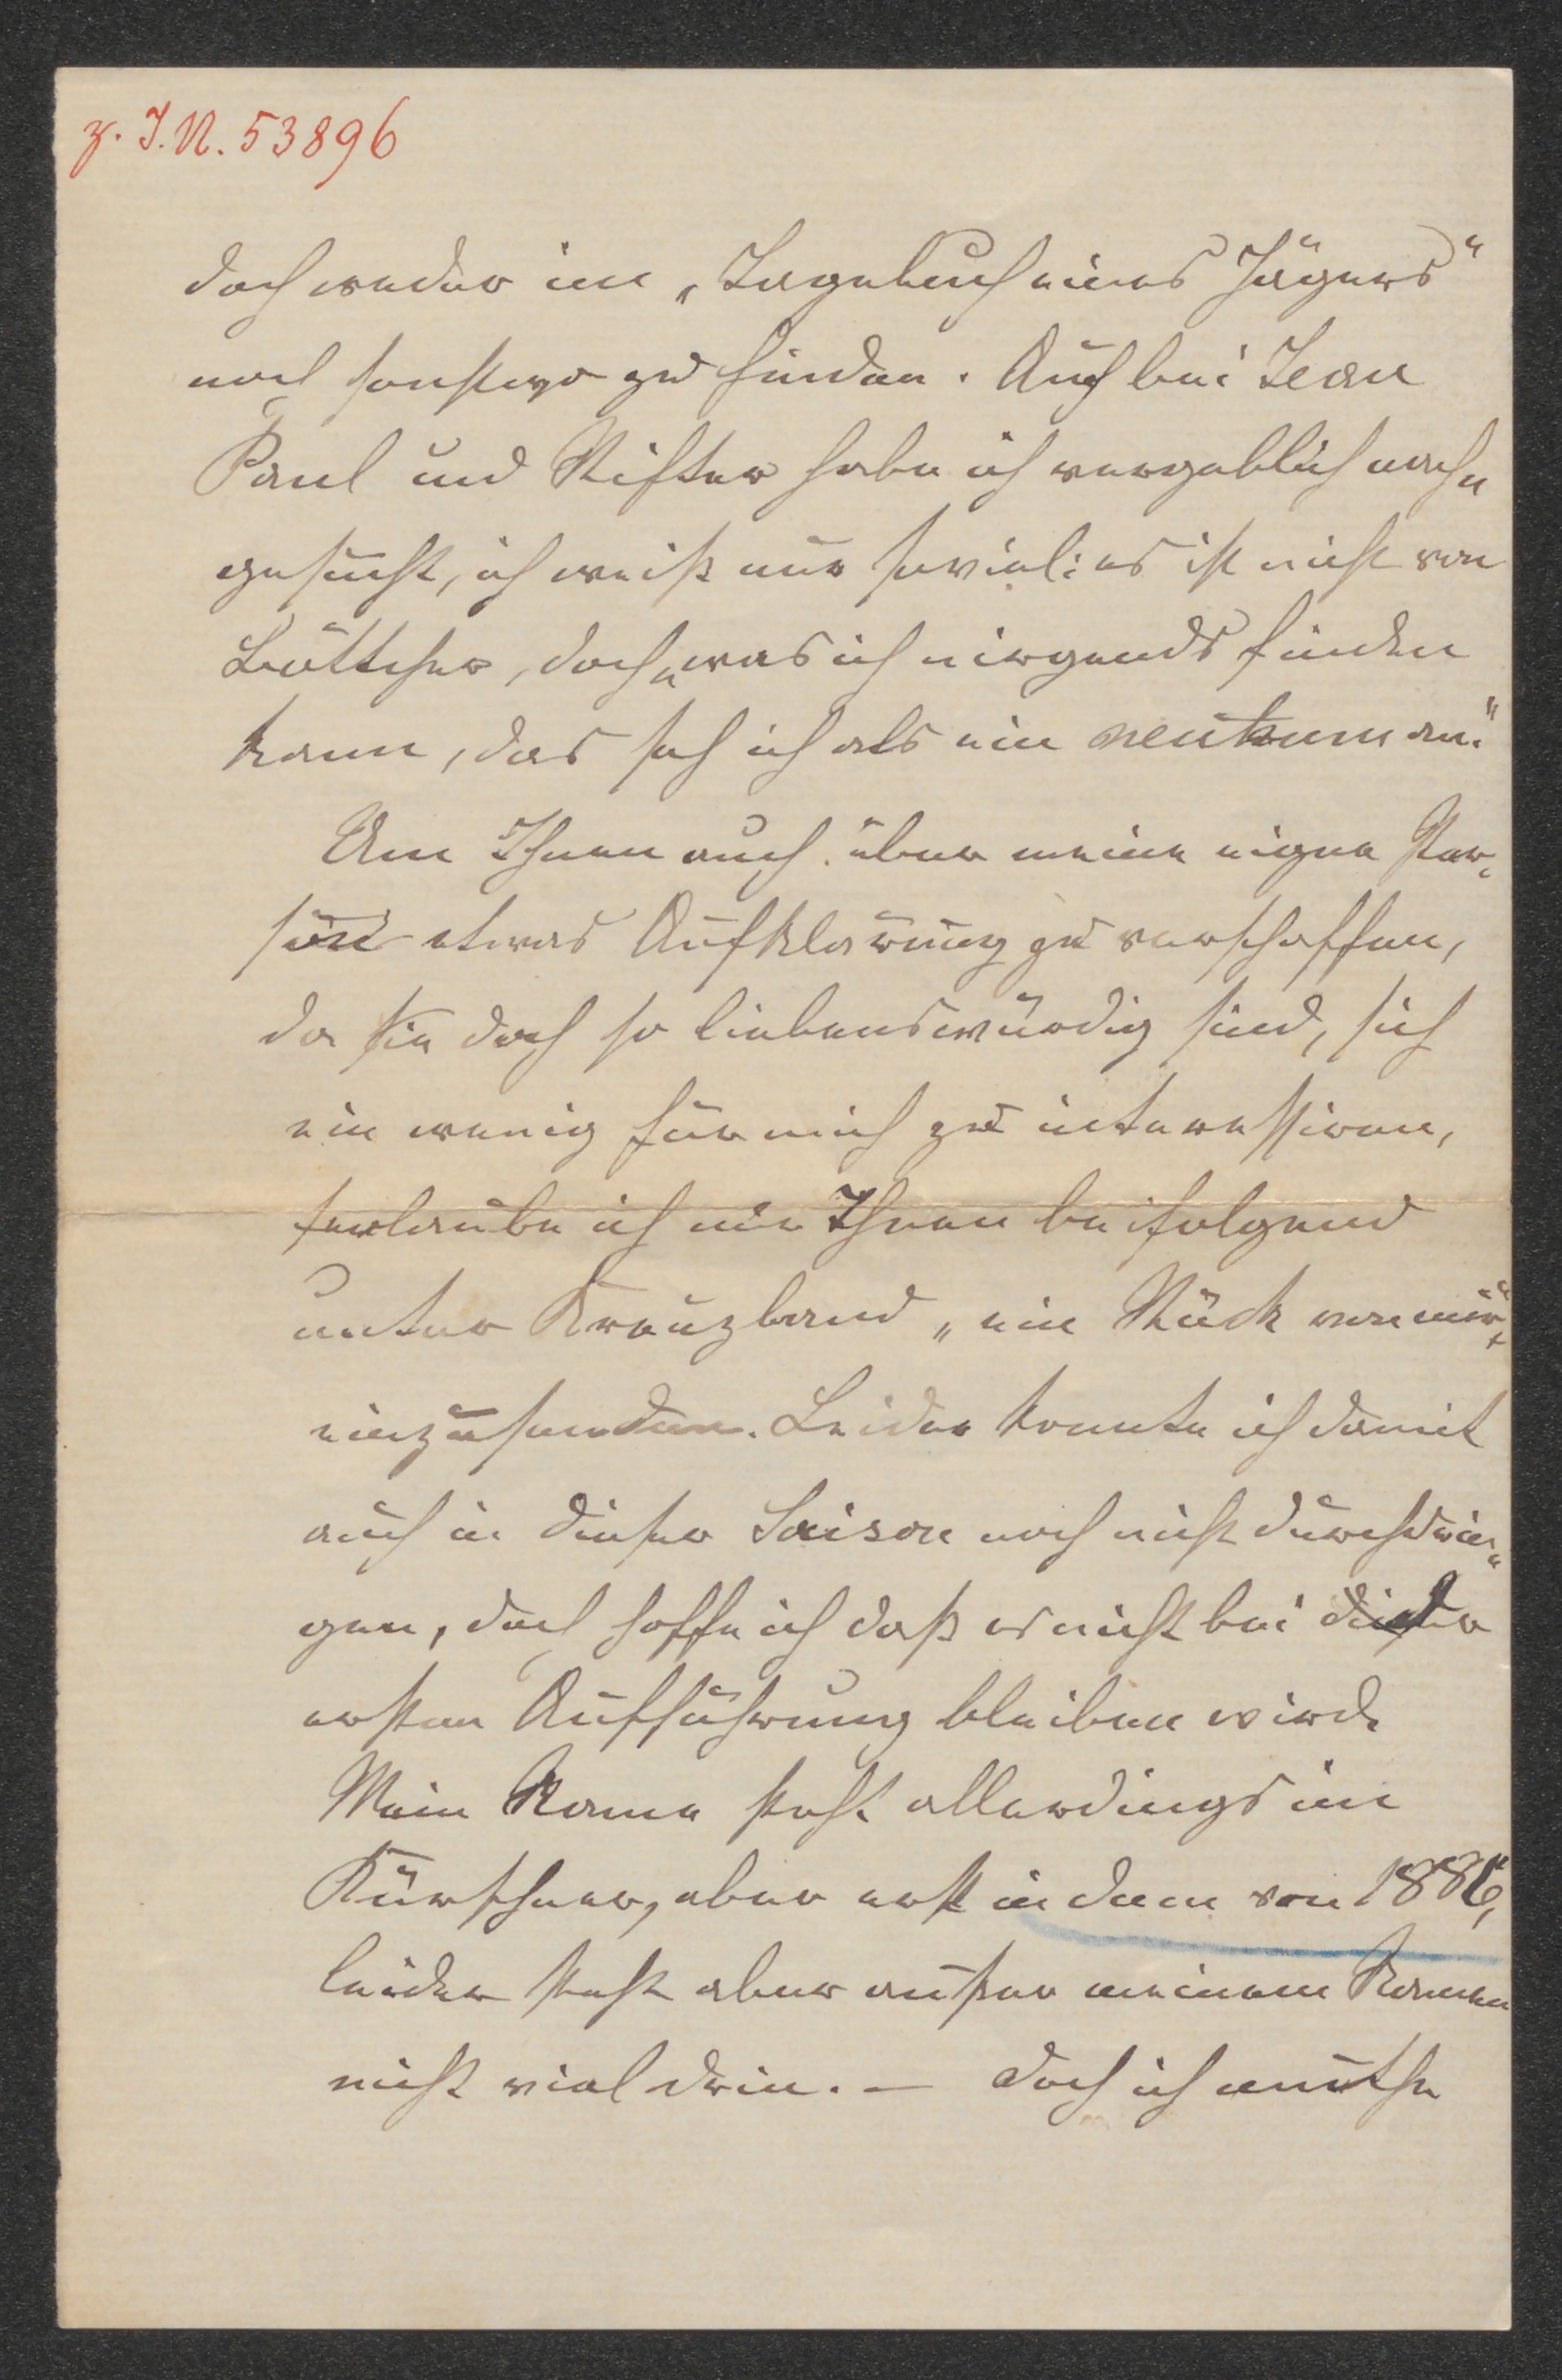 z. I.N. 53896
doch weder im „Tagebuch eines Jägers“
noch sonstwo zu finden. Auch bei Jean
Paul und Stifter habe ich vergeblich nach„
gesucht, ich weiß nur soviel: es ist nicht von
Böttcher, doch „was ich nirgends finden
kann, das seh ich als ein neutrum an.“
Um Ihnen auch über meine eigne Per„
son etwas Aufklärung zu verschaffen,
da Sie doch so liebenswürdig sind, sich
ein wenig für mich zu interessiren,
erlaube ich mir Ihnen beifolgend
unter Kreuzband „ein Stück von mir“
einzusenden. Leider konnte ich damit
auch in dieser Saison noch nicht durchdrin„
gen, doch hoffe ich daß es nicht bei der
ersten Aufführung bleiben wird.
Mein Name steht allerdings im
Kürschner, aber erst in dem von 1886,
leider steht aber außer meinem Namen
nicht viel drin. — Doch ich muthe